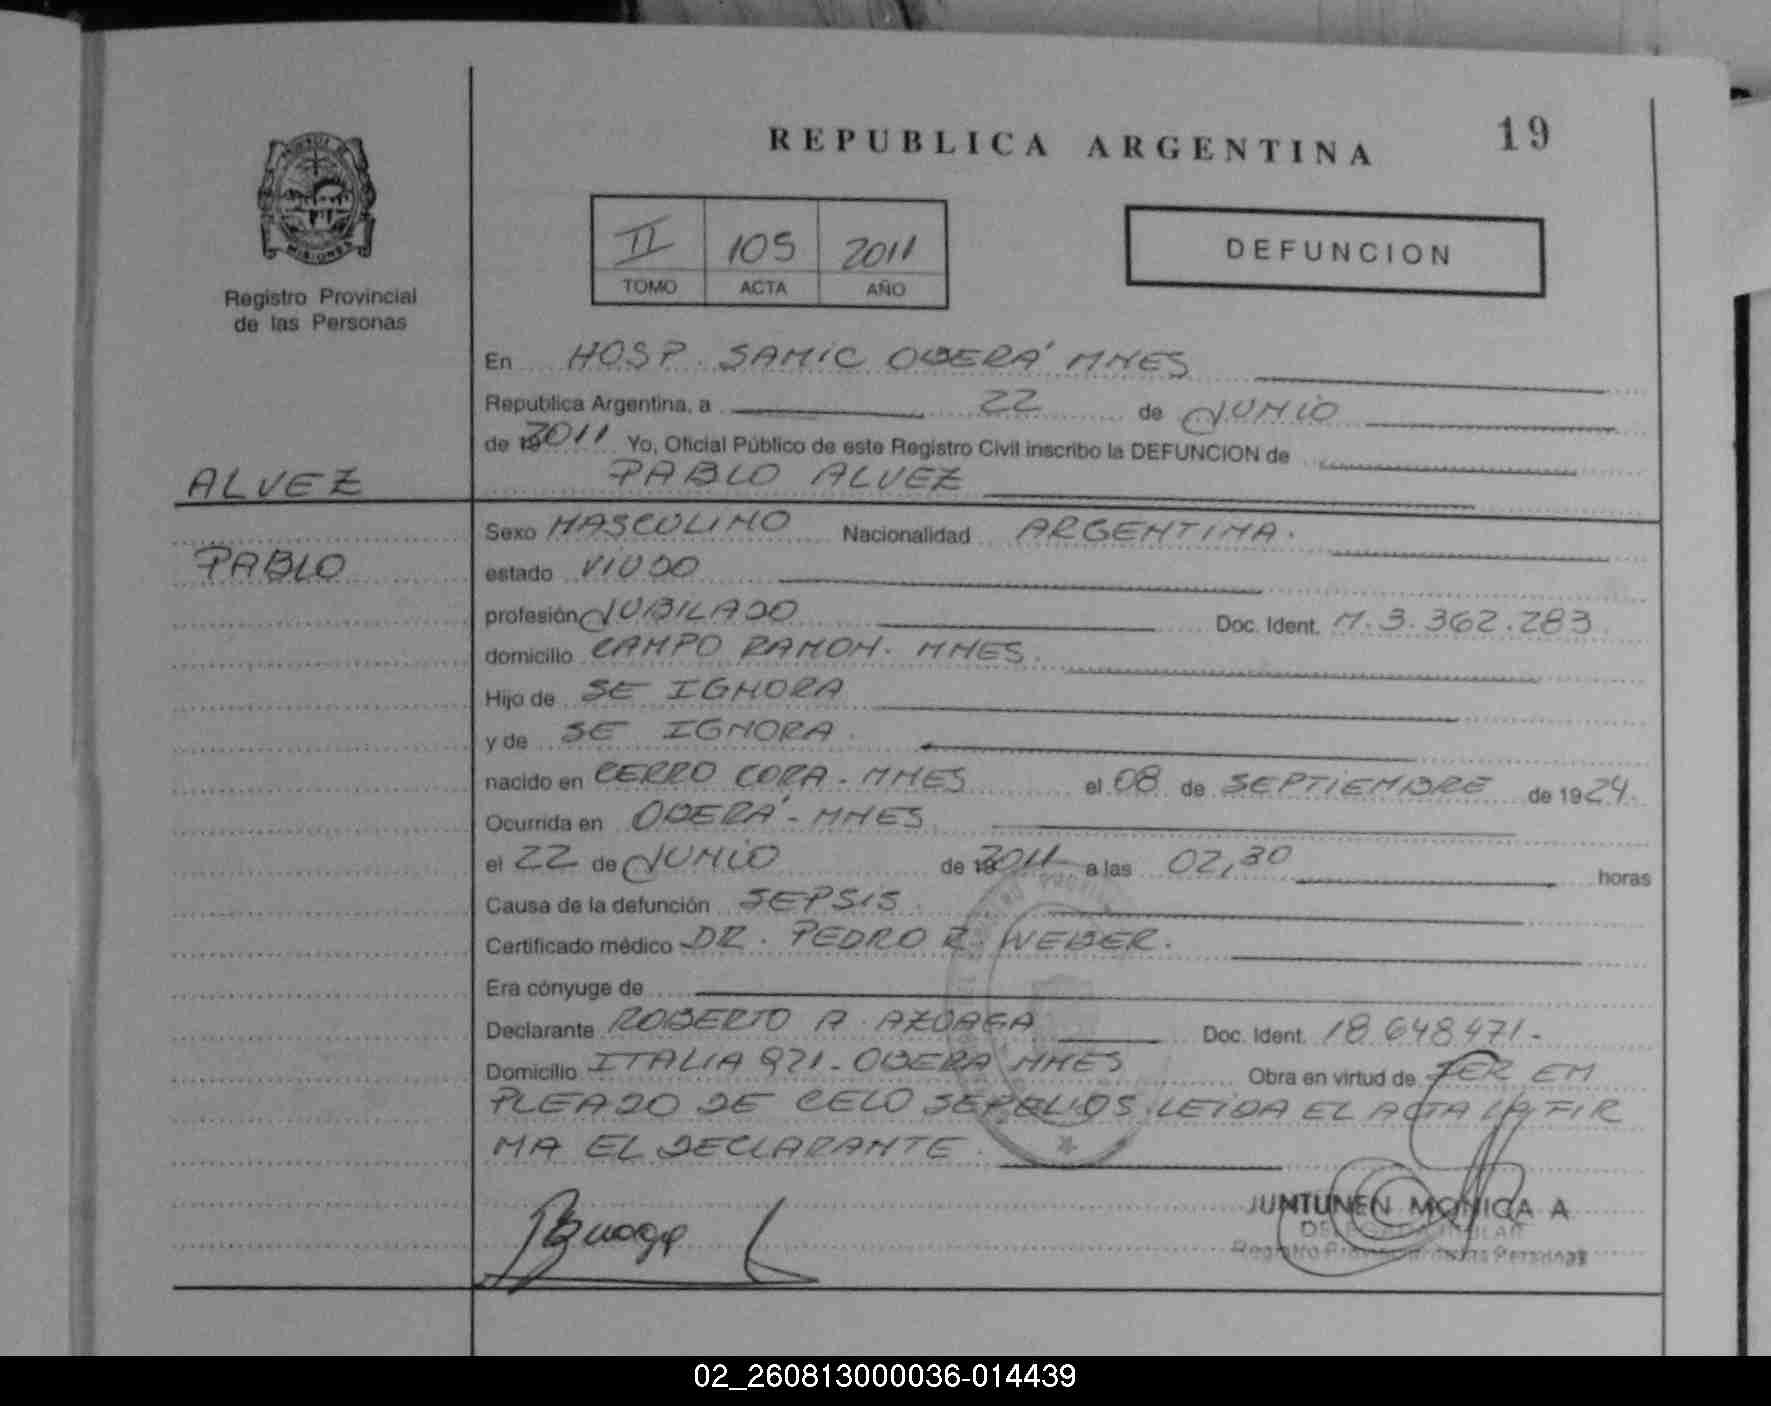 REPUBLICA ARGENTINA 19
MISIONES
Registro Provincial
de las Personas
II 105 2011
TOMO ACTA AÑO
DEFUNCION
En HOSP. SAMIC OBERÁ MNES
Republica Argentina, a 22 de JUNIO
de 19 2011 Yo, Oficial Público de este Registro Civil inscribo la DEFUNCION de
ALVEZ
PABLO ALVEZ
Sexo MASCULINO Nacionalidad ARGENTINA.
PABLO
estado VIUDO
profesión JUBILADO Doc. Ident. M. 3.362.283
domicilio CAMPO RAMON. MNES.
Hijo de SE IGNORA
y de SE IGNORA.
nacido en CERRO CORA - MNES el 08 de SEPTIEMBRE de 1924.
Ocurrida en OBERÁ - MNES
el 22 de JUNIO de 19 2011 a las 02,30 horas
Causa de la defunción SEPSIS.
Certificado médico DR. PEDRO R. WEBER.
Era cónyuge de
Declarante ROBERTO A. AZUAGA Doc. Ident. 18.648.471-
Domicilio ITALIA 921 - OBERA MNES Obra en virtud de SER EM
PLEADO DE CELO SEPELIOS. LEIDA EL ACTA LA FIR
MA EL DECLARANTE.
JUNTUNEN MONICA A
Registro Provincial de las Personas
02_260813000036-014439